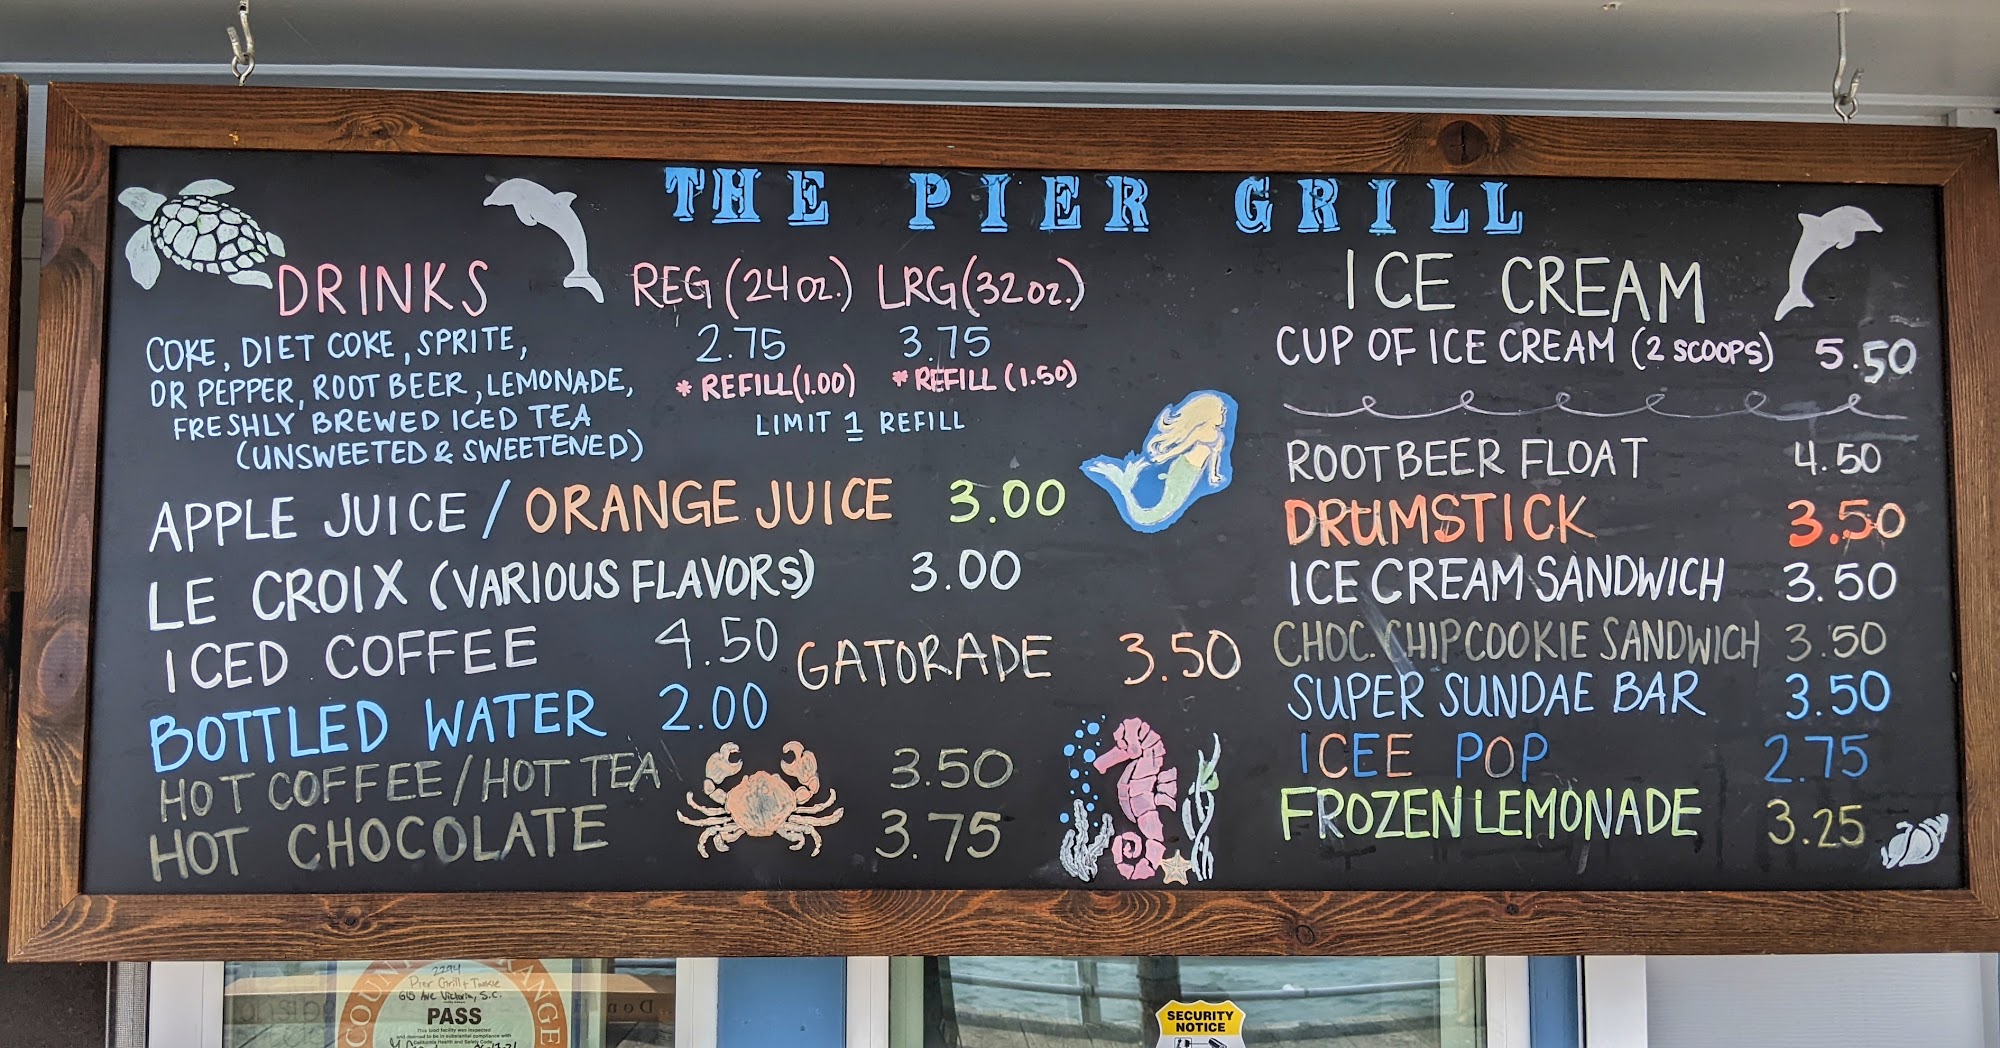 THE PIER GRILL
DRINKS REG (24 oz.) LRG (32 oz.)
COKE, DIET COKE, SPRITE, 2.75 3.75
DR PEPPER, ROOT BEER, LEMONADE, * REFILL (1.00) * REFILL (1.50)
FRESHLY BREWED ICED TEA LIMIT 1 REFILL
(UNSWEETED & SWEETENED)
APPLE JUICE / ORANGE JUICE 3.00
LE CROIX (VARIOUS FLAVORS) 3.00
ICED COFFEE 4.50 GATORADE 3.50
BOTTLED WATER 2.00
HOT COFFEE / HOT TEA 3.50
HOT CHOCOLATE 3.75
ICE CREAM
CUP OF ICE CREAM (2 SCOOPS) 5.50
ROOTBEER FLOAT 4.50
DRUMSTICK 3.50
ICE CREAM SANDWICH 3.50
CHOC. CHIP COOKIE SANDWICH 3.50
SUPER SUNDAE BAR 3.50
ICEE POP 2.75
FROZEN LEMONADE 3.25
2294
Pier Grill + Tackle
615 Ave Victoria, S.C.
PASS
This food facility was inspected
and deemed to be in substantial compliance with
California Health and Safety Code
SECURITY
NOTICE